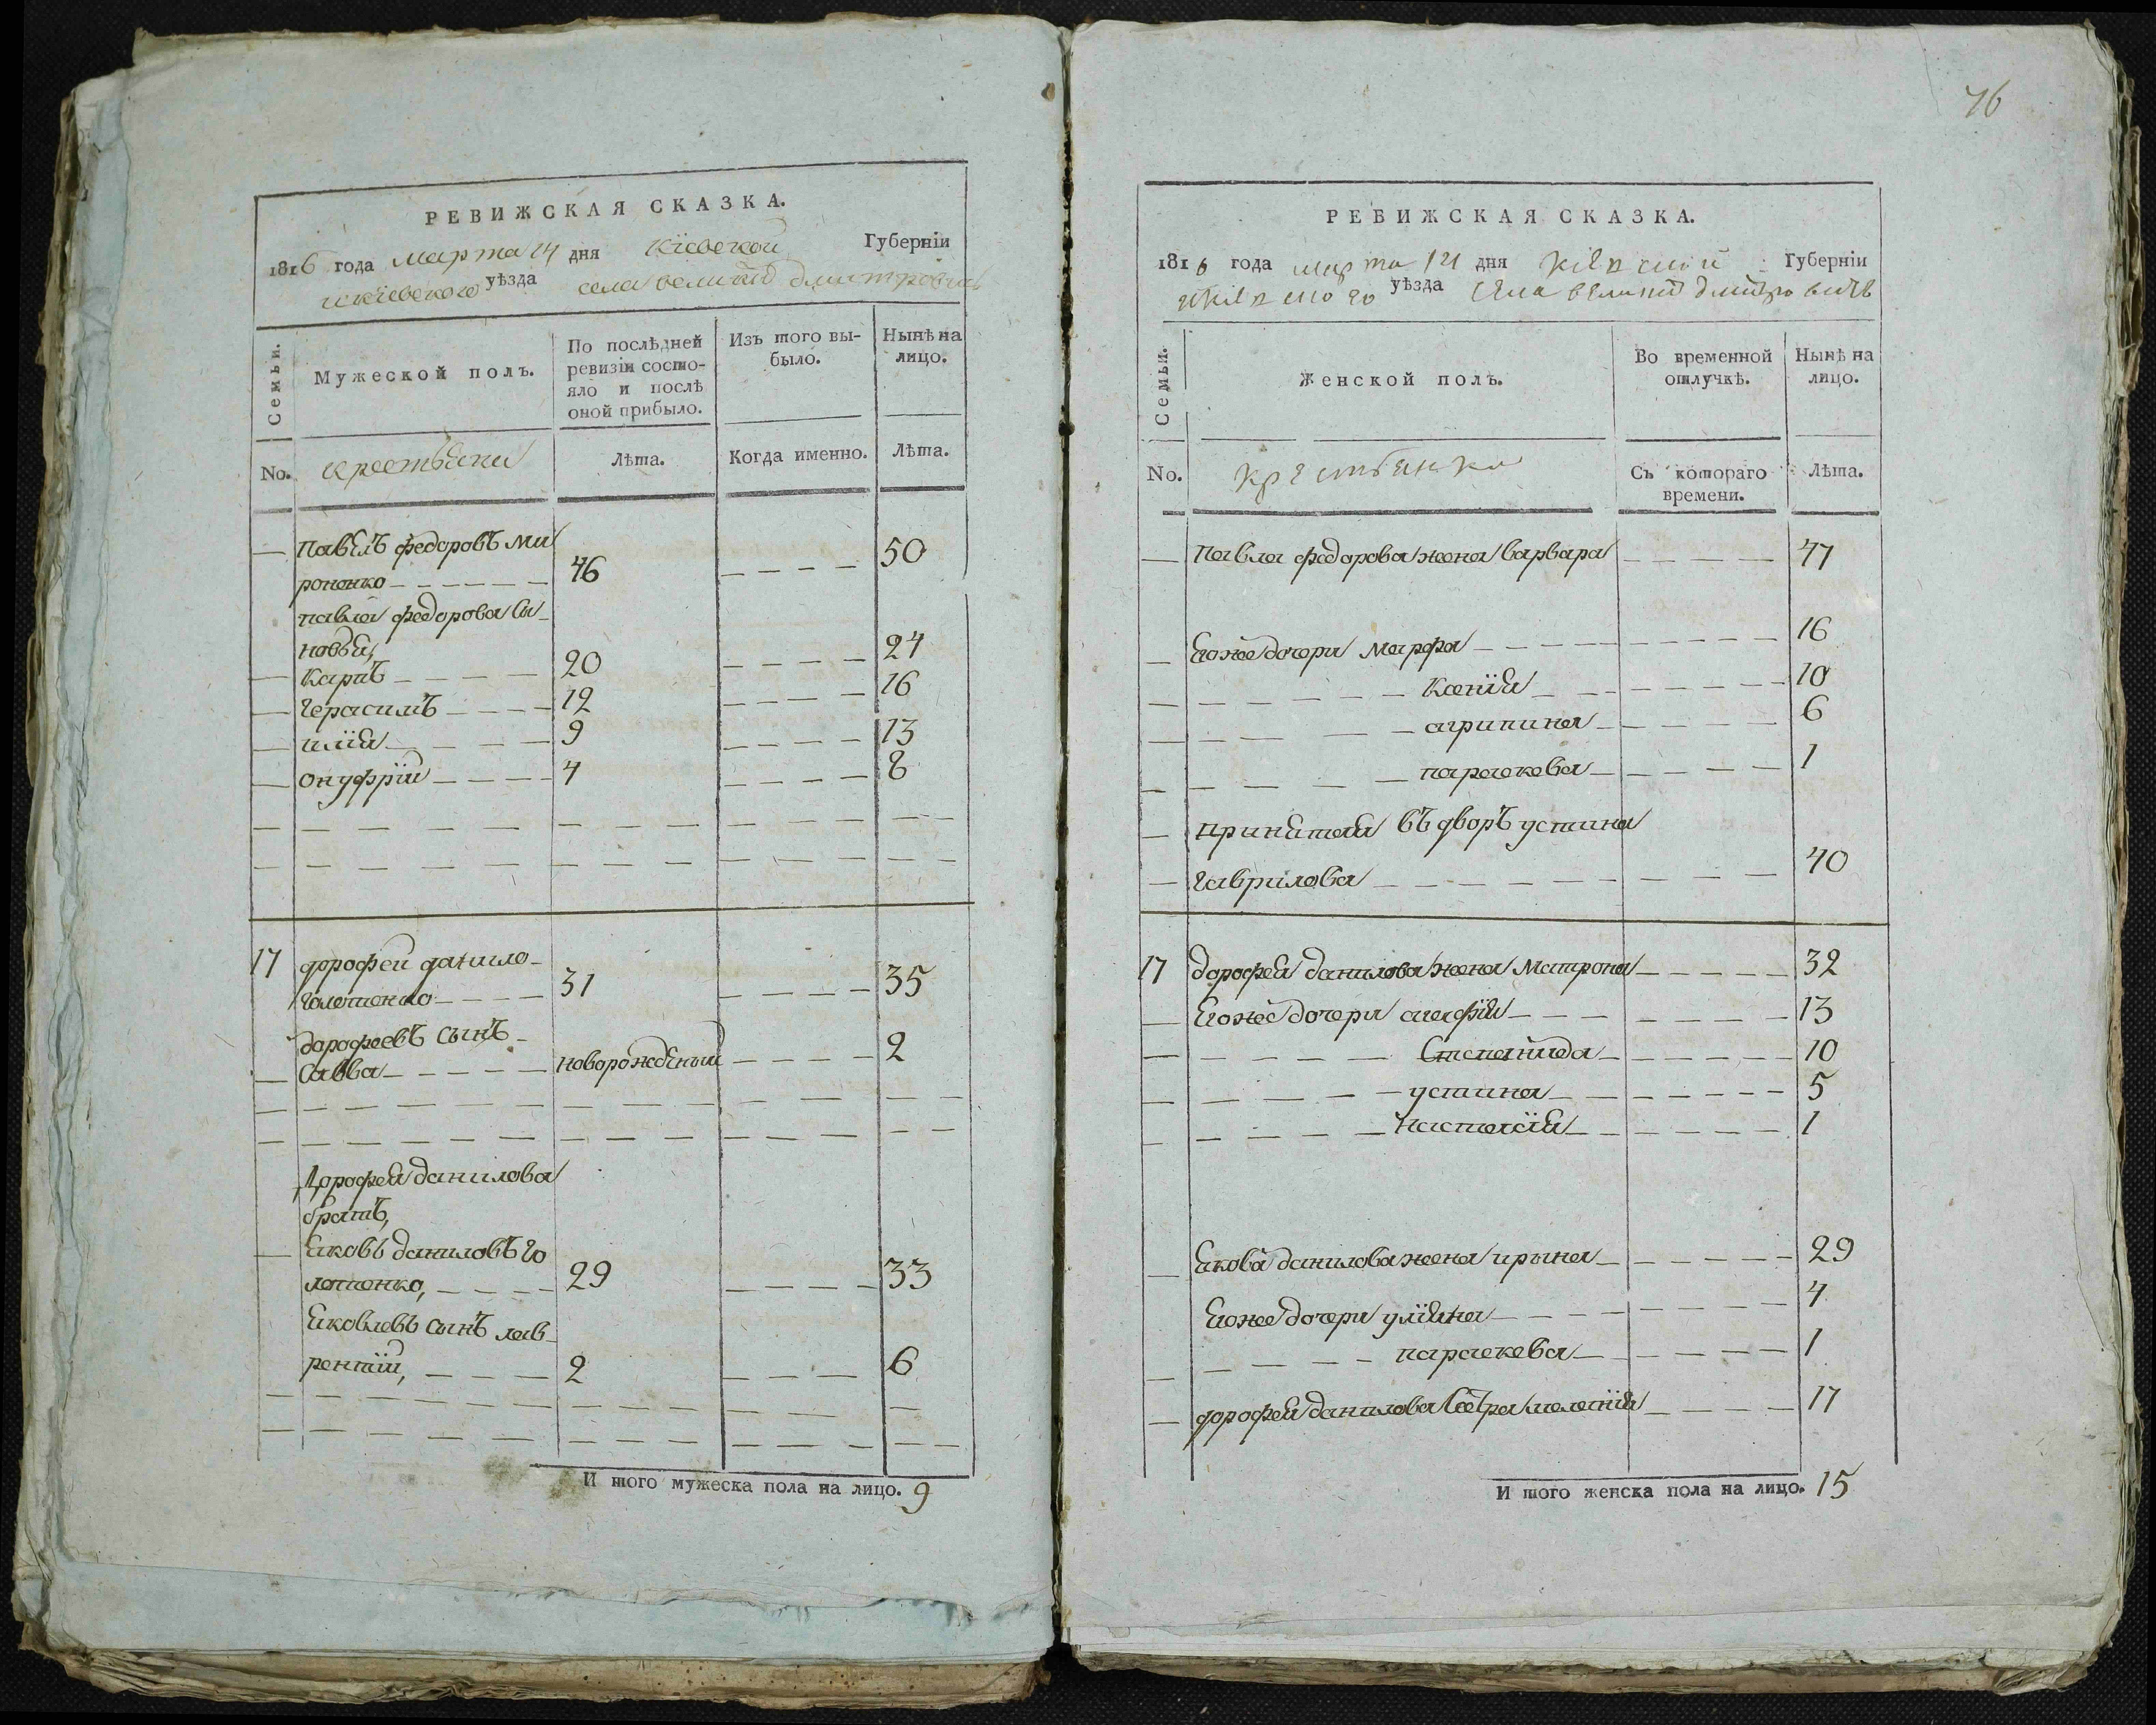 РЕВИЖСКАЯ СКАЗКА.
1816 года марта 14 дня Кіевской Губерніи
Кіевского уѣзда села великихъ дмитровичь
Семьи.
Мужеской полъ.
По послѣдней ревизіи состояло и послѣ оной прибыло.
Изъ того выбыло.
Нынѣ на лицо.
No. крестьяни Лѣта. Когда именно. Лѣта.
павелъ федоровъ ми
роненко 46 50
павла федорова сы
новья,
Карпъ 20 24
Герасимъ 12 16
илія 9 13
онуфрій 4 8
17 дорофей данило
голотенко 31 35
дорофеевъ сынъ
Савва новорожденый 2
Дорофея данилова
братъ,
Яковъ даниловъ го
лотенко, 29 33
Яковлевъ сынъ лав
рентій, 2 6
И того мужеска пола на лицо. 9
76
РЕВИЖСКАЯ СКАЗКА.
1816 года марта 14 дня Кіевской Губерніи
Кіевского уѣзда села великихъ дмитровичь
Семьи.
Женской полъ.
Во временной отлучкѣ.
Нынѣ на лицо.
No. крестьянки Съ котораго времени. Лѣта.
Павла федорова жена варвара 47
Егоже дочери марфа 16
Ксенія 10
агрипина 6
параскева 1
принятая въ дворъ устина
гаврилова 40
17 дорофея данилова жена Матрона 32
Егоже дочери агафія 13
Степанида 10
устина 5
Настасія 1
Якова данилова жена ирына 29
Егоже дочери уліяна 4
параскева 1
дорофея данилова сестра меланія 17
И того женска пола на лицо. 15